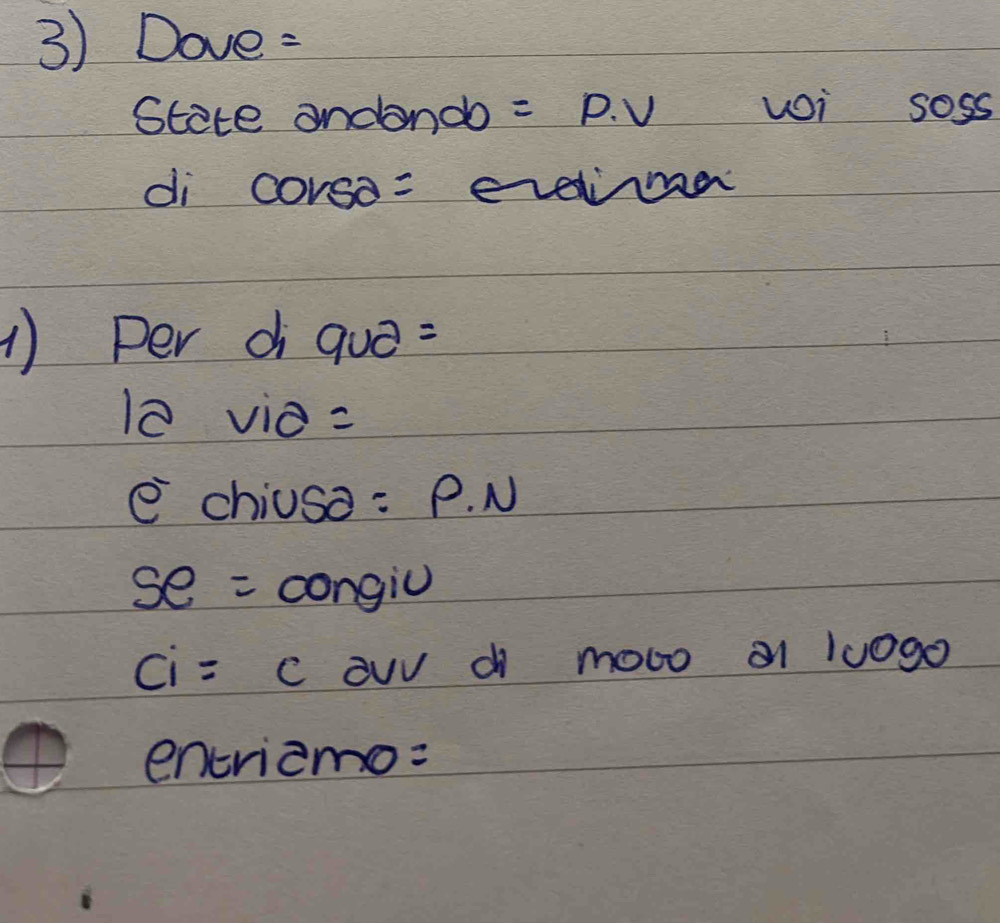 3) Dove =
State andando = P.V voi sogg
di corsa =
1) Per di qua =
la via =
è chiusa = P.N
se = congiu
Ci = c avv di moto al luogo
entriamo =